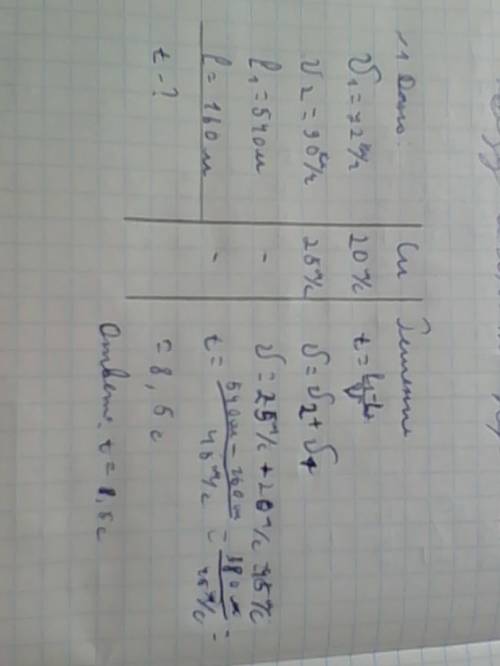 1 Дано:
υ₁ = 72 км/ч
υ₂ = 90 км/ч
l₁ = 540 м
l = 160 м
t - ?
Си
20 м/с
25 м/с
-
-
Решение
t =
υ = υ₂ + υ₁
υ = 25 м/с + 20 м/с 45 м/с
t = 540 м - 160 м / 45 м/с = 380 м / 45 м/с =
= 8,5 с
Ответ: t = 8,5 с